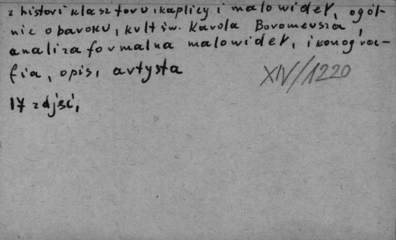 z histori klasztoru i kaplicy i malowideł, ogól-
nie o baroku, kult św. Karola Boromeusza,
analiza formalna malowideł, ikonogra-
fia, opis, artysta
XIV/1220
17 zdjęć,